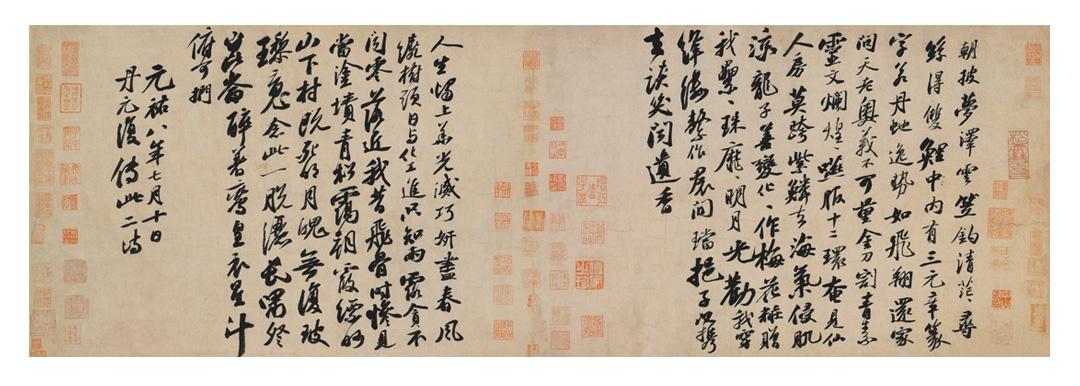 朝披夢澤雲笠釣清茫〻尋
絲得雙鯉中內有三元章篆
字若丹蛇逸勢如飛翔還家
問天老奧義不可量金刀割青素
靈文爛煌〻嚥服十二環奄見仙
人房莫跨紫鱗去海氣侵肌
涼龍子善變化〻作梅花妝贈
我纍〻珠靡〻明月光勸我穿
絳縷繫作裙間璫挹子以攜
去談笑聞遺香
人生燭上華光滅巧妍盡春風
繞樹頭日與化工進只知雨露貪不
聞零落近我昔飛骨時慘見
當塗墳青松靄朝霞縹緲
山下村既死明月魄無復玻
璃魂念此一脫灑長嘯祭
崑崙醉著鸞皇衣星斗
俯可捫
元祐八年七月十日
丹元復傳此二詩